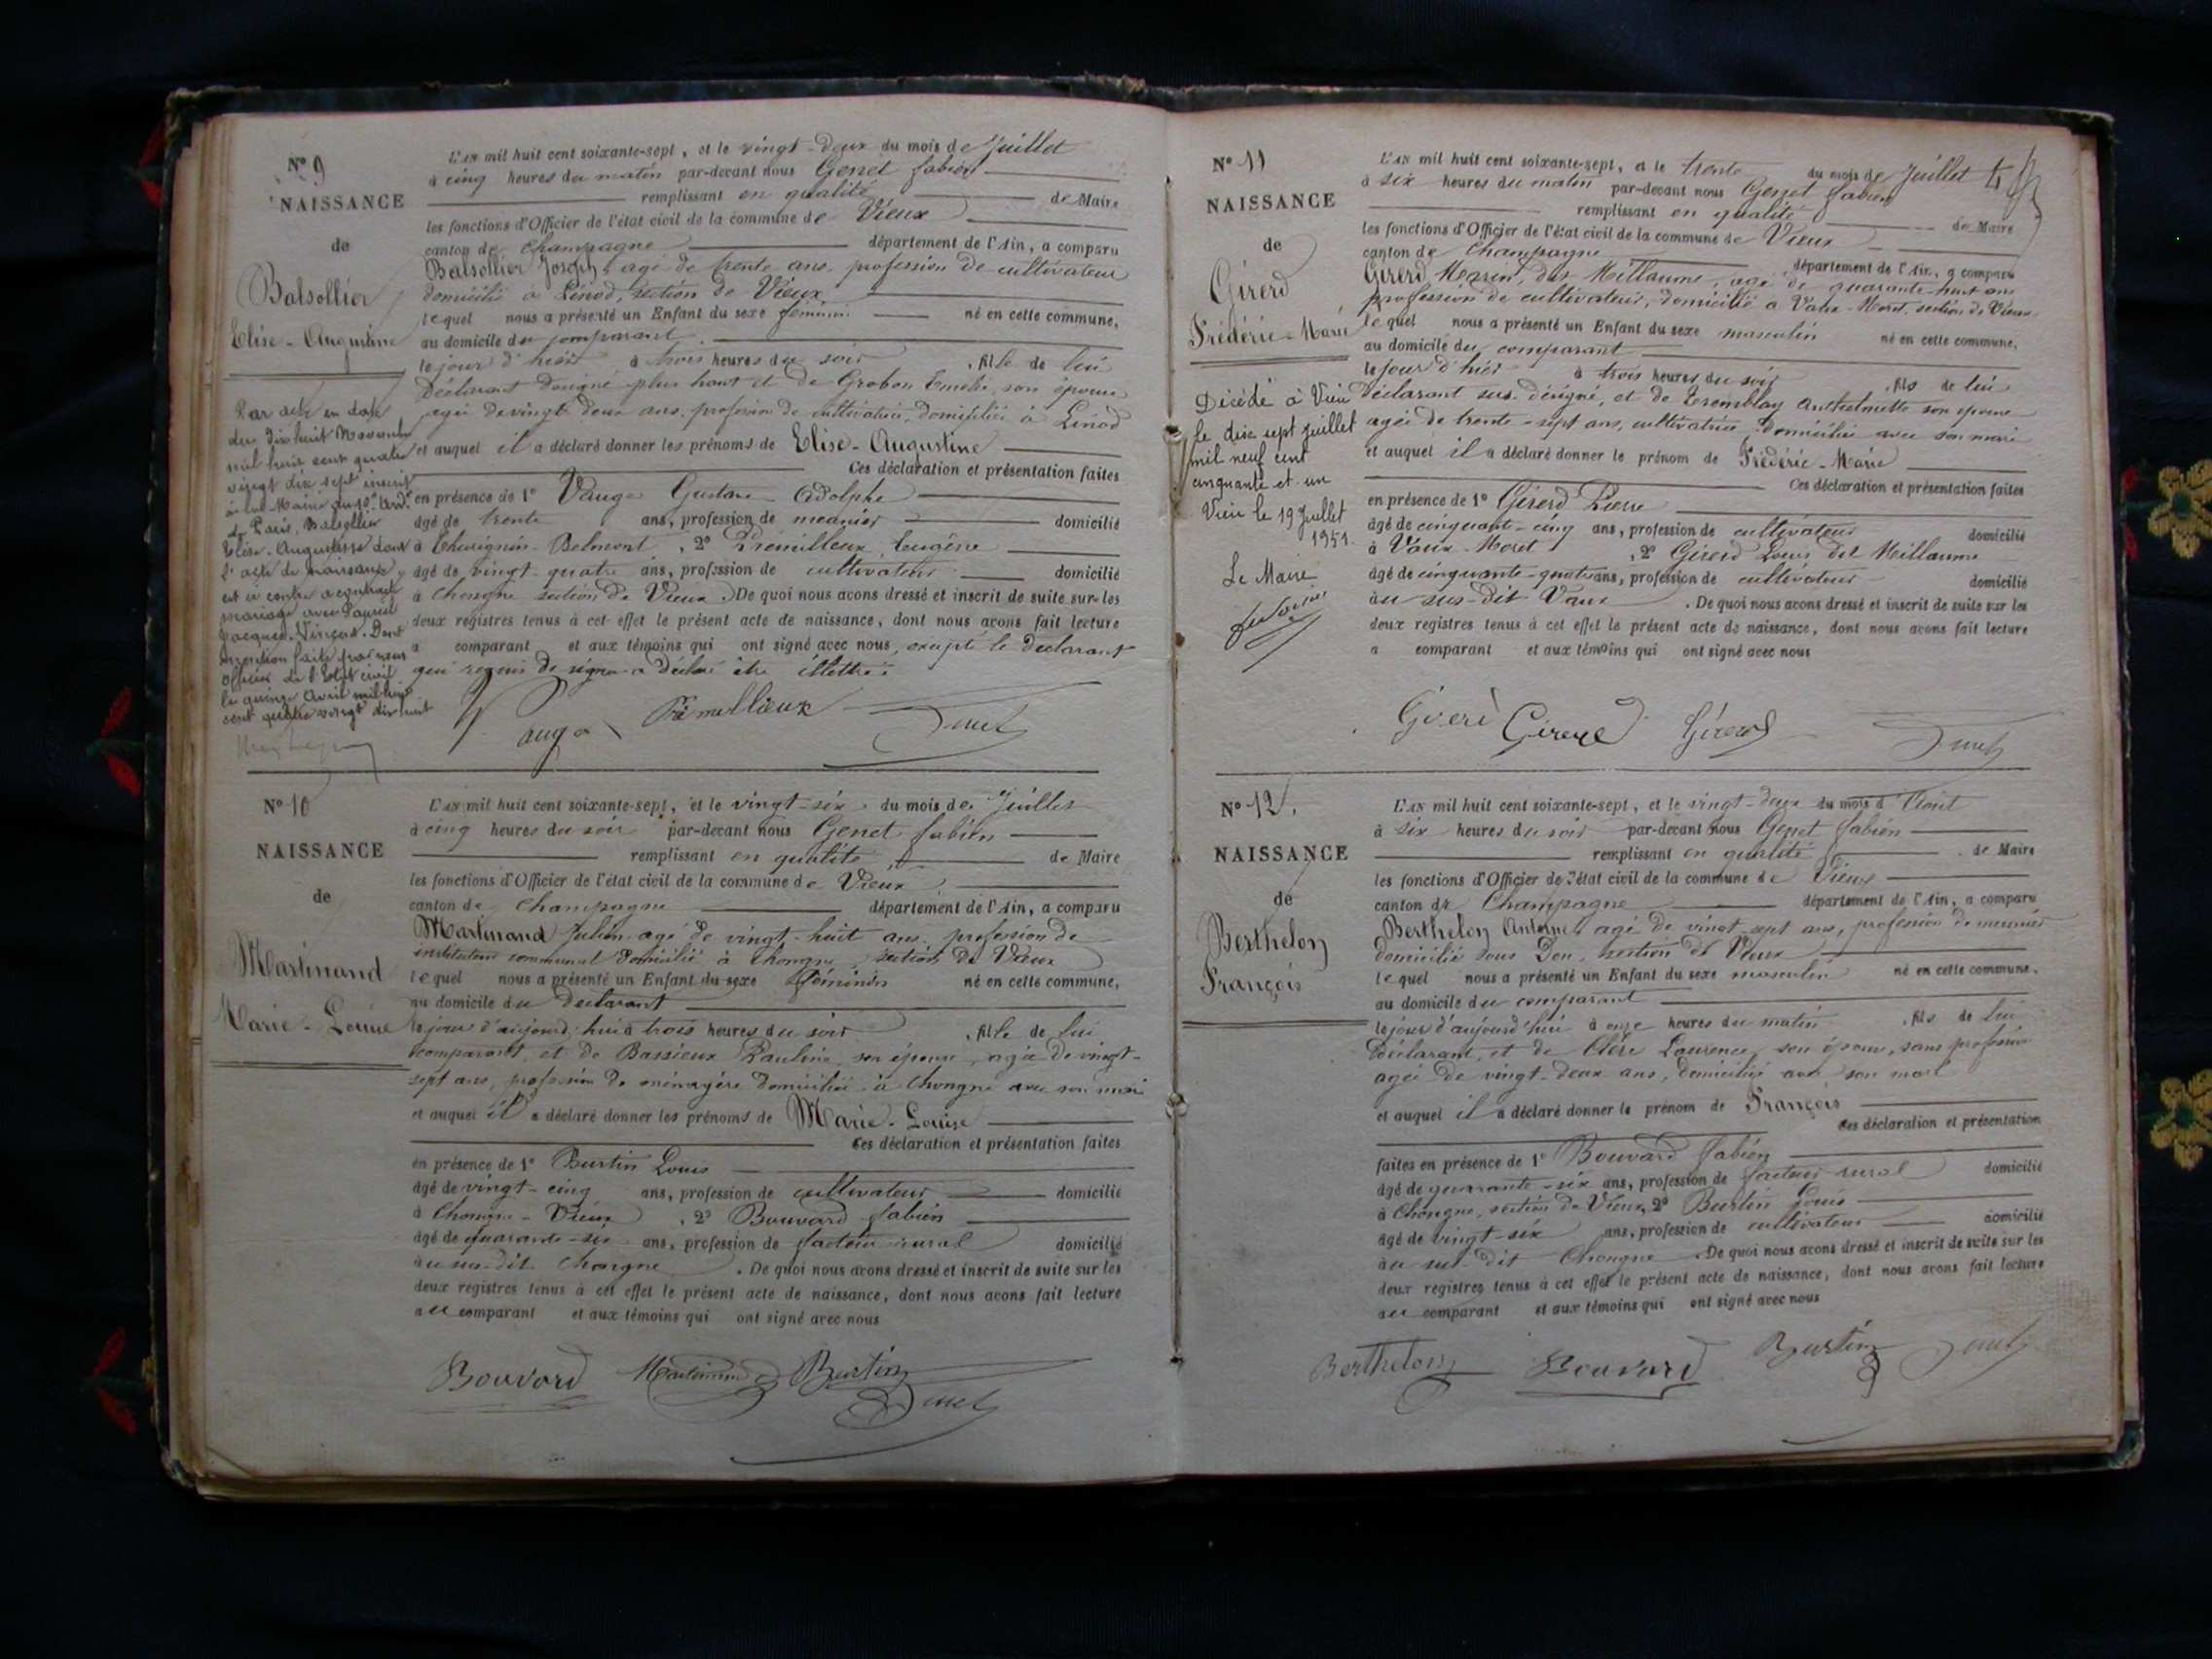 N° 9
NAISSANCE
de
Balsollier
Elise - Augustine
Par acte en date
du dix huit Novembre
mil huit cent quatre
vingt dix sept inscrit
à la Mairie du
de Paris, Balsollier
Elise - Augustine dont
l'acte de naissance
est ci contre a contracté
mariage avec
Jacques - Vincent. Dont
mention faite par nous
officier de l'Etat civil
le quinze Avril mil huit
cent quatre vingt dix huit
L'AN mil huit cent soixante-sept, et le vingt-deux du mois de Juillet
à cinq heures du matin par-devant nous Genet fabien
remplissant en qualité de Maire
les fonctions d'Officier de l'état civil de la commune de Vieux
canton de Champagne département de l'Ain, a comparu
Balsollier Joseph, agé de trente ans, profession de cultivateur
domicilié à Linod, section de Vieux
lequel nous a présenté un Enfant du sexe féminin né en cette commune,
au domicile du comparant
le jour d'hier à trois heures du soir, fille de lui
Déclarant désigné plus haut et de Grobon Emelie, son épouse
agée de vingt deux ans, profession de cultivatrice, domiciliée à Linod
et auquel il a déclaré donner les prénoms de Elise - Augustine
Ces déclaration et présentation faites
en présence de 1° Vauga Gustave Adolphe
âgé de trente ans, profession de meunier domicilié
à Belmont, 2° Prémilleux Eugène
âgé de vingt-quatre ans, profession de cultivateur domicilié
à Chongne section de Vieux. De quoi nous avons dressé et inscrit de suite sur les
deux registres tenus à cet effet le présent acte de naissance, dont nous avons fait lecture
a comparant et aux témoins qui ont signé avec nous, excepté le déclarant
qui requis de signer a déclaré être illettré
Vauga Prémillieux Genet
N° 10
NAISSANCE
de
Martinand
Marie - Louise
L'AN mil huit cent soixante-sept, et le vingt-six du mois de Juillet
à cinq heures du soir par-devant nous Genet fabien
remplissant en qualité de Maire
les fonctions d'Officier de l'état civil de la commune de Vieux
canton de Champagne département de l'Ain, a comparu
Martinand Julien agé de vingt-huit ans, profession de
instituteur communal domicilié à Chongne, section de Vieux
lequel nous a présenté un Enfant du sexe féminin né en cette commune,
au domicile du déclarant
le jour d'aujourd'hui à trois heures du soir, fille de lui
comparant, et de Bassieux Pauline, son épouse, agée de vingt-
sept ans, profession de ménagère domiciliée à Chongne avec son mari
et auquel il a déclaré donner les prénoms de Marie - Louise
Ces déclaration et présentation faites
en présence de 1° Burtin Louis
âgé de vingt-cinq ans, profession de cultivateur domicilié
à Chongne - Vieux, 2° Bouvard fabien
âgé de quarante-six ans, profession de facteur rural domicilié
au sus-dit Chongne. De quoi nous avons dressé et inscrit de suite sur les
deux registres tenus à cet effet le présent acte de naissance, dont nous avons fait lecture
au comparant et aux témoins qui ont signé avec nous
Bouvard Martinand Burtin
Genet
N° 11
NAISSANCE
de
Girerd
Frédéric - Marie
Décédé à Vieu
le dix sept juillet
mil neuf cent
cinquante et un
Vieu le 19 Juillet
1951.
Le Maire
L'AN mil huit cent soixante-sept, et le trente du mois de Juillet
à six heures du matin par-devant nous Genet fabien
remplissant en qualité de Maire
les fonctions d'Officier de l'état civil de la commune de Vieux
canton de Champagne département de l'Ain, a comparu
Girerd Marin, dit Millaume, agé de quarante-huit ans
profession de cultivateur, domicilié a Vaux-Moret, section de Vieux
lequel nous a présenté un Enfant du sexe masculin né en cette commune,
au domicile du comparant
le jour d'hier à trois heures du soir, fils de lui
Déclarant sus-désigné, et de Tremblay Anthelmette son épouse
agée de trente-sept ans, cultivatrice domiciliée avec son mari
et auquel il a déclaré donner le prénom de Frédéric - Marie
Ces déclaration et présentation faites
en présence de 1° Girerd Pierre
âgé de cinquante-cinq ans, profession de cultivateur domicilié
à Vaux-Moret, 2° Girerd Louis dit Millaume
âgé de cinquante-quatre ans, profession de cultivateur domicilié
au sus-dit Vaux. De quoi nous avons dressé et inscrit de suite sur les
deux registres tenus à cet effet le présent acte de naissance, dont nous avons fait lecture
a comparant et aux témoins qui ont signé avec nous
Girerd Girerd Genet
N° 12.
NAISSANCE
de
Berthelon
François
L'AN mil huit cent soixante-sept, et le vingt-deux du mois d'Août
à six heures du soir par-devant nous Genet fabien
remplissant en qualité de Maire
les fonctions d'Officier de l'état civil de la commune de Vieux
canton de Champagne département de l'Ain, a comparu
Berthelon Antoine agé de vingt-sept ans, profession de meunier
domicilié sous Don, section de Vieux
lequel nous a présenté un Enfant du sexe masculin né en cette commune,
au domicile du comparant
le jour d'aujourd'hui à onze heures du matin, fils de lui
Déclarant, et de Clère Laurence, son épouse, sans profession
agée de vingt-deux ans, domiciliée avec son mari
et auquel il a déclaré donner le prénom de François
Ces déclaration et présentation
faites en présence de 1° Bouvard fabien
âgé de quarante-six ans, profession de facteur rural domicilié
à Chongne, section de Vieux, 2° Burtin Louis
âgé de vingt-six ans, profession de cultivateur domicilié
au sus-dit Chongne. De quoi nous avons dressé et inscrit de suite sur les
deux registres tenus à cet effet le présent acte de naissance, dont nous avons fait lecture
au comparant et aux témoins qui ont signé avec nous
Berthelon Bouvard Burtin Genet